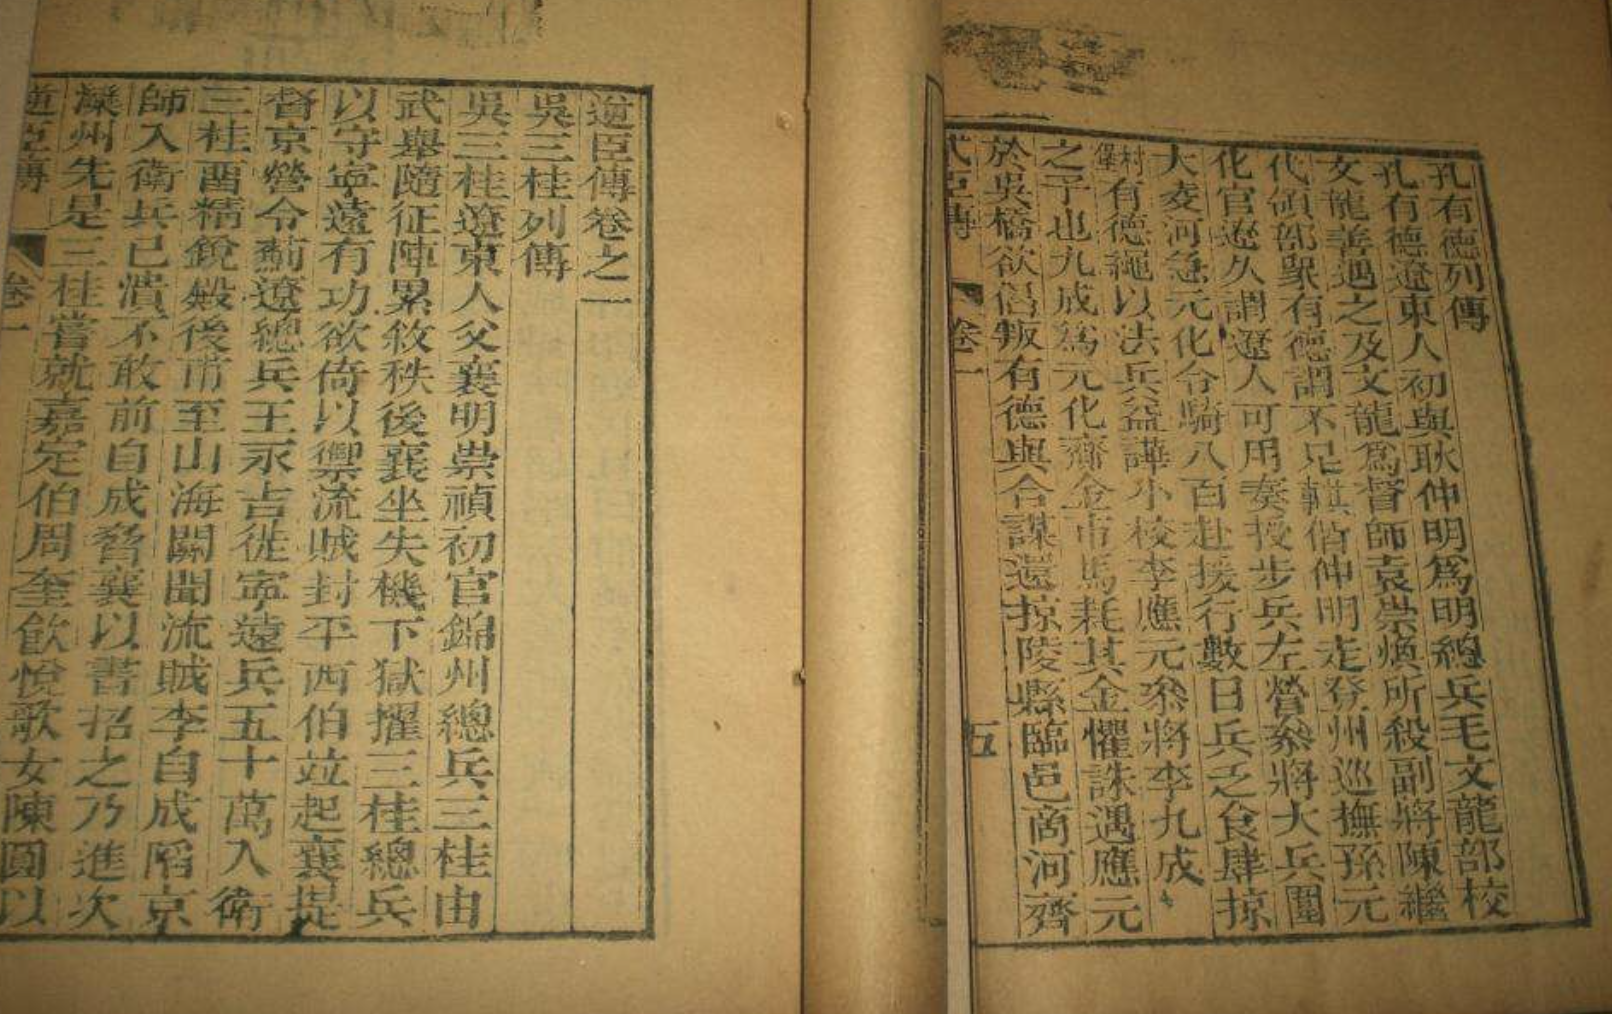 孔有德列傳
孔有德遼東人初與耿仲明爲明總兵毛文龍部校
文龍善遇之及文龍爲督師袁崇煥所殺副將陳繼
代領部眾有德謂不足輔偕仲明走登州巡撫孫元
化官遼久謂遼人可用奏授步兵左營叅將大兵圍
大凌河急元化令騎八百赴援行數日兵乏食肆掠
村有德繩以法兵益譁小校李應元叅將李九成
之子也九成爲元化齎金市馬耗其金懼誅遇應元
於吳橋欲倡叛有德與合謀還掠陵縣臨邑商河齊
臣傳 卷一 五
逆臣傳卷之一
吳三桂列傳
吳三桂遼東人父襄明崇禎初官錦州總兵三桂由
武舉隨征陣累敘秩後襄坐失機下獄擢三桂總兵
以守寧遠有功欲倚以禦流賊封平西伯竝起襄提
督京營令薊遼總兵王永吉徙寧遠兵五十萬入衛
三桂酉精銳殿後甫至山海關聞流賊李自成陷京
師入衛兵已潰不敢前自成脅襄以書招之乃進次
灤州先是三桂嘗就嘉定伯周奎飲悅歌女陳圓以
逆臣傳 卷一